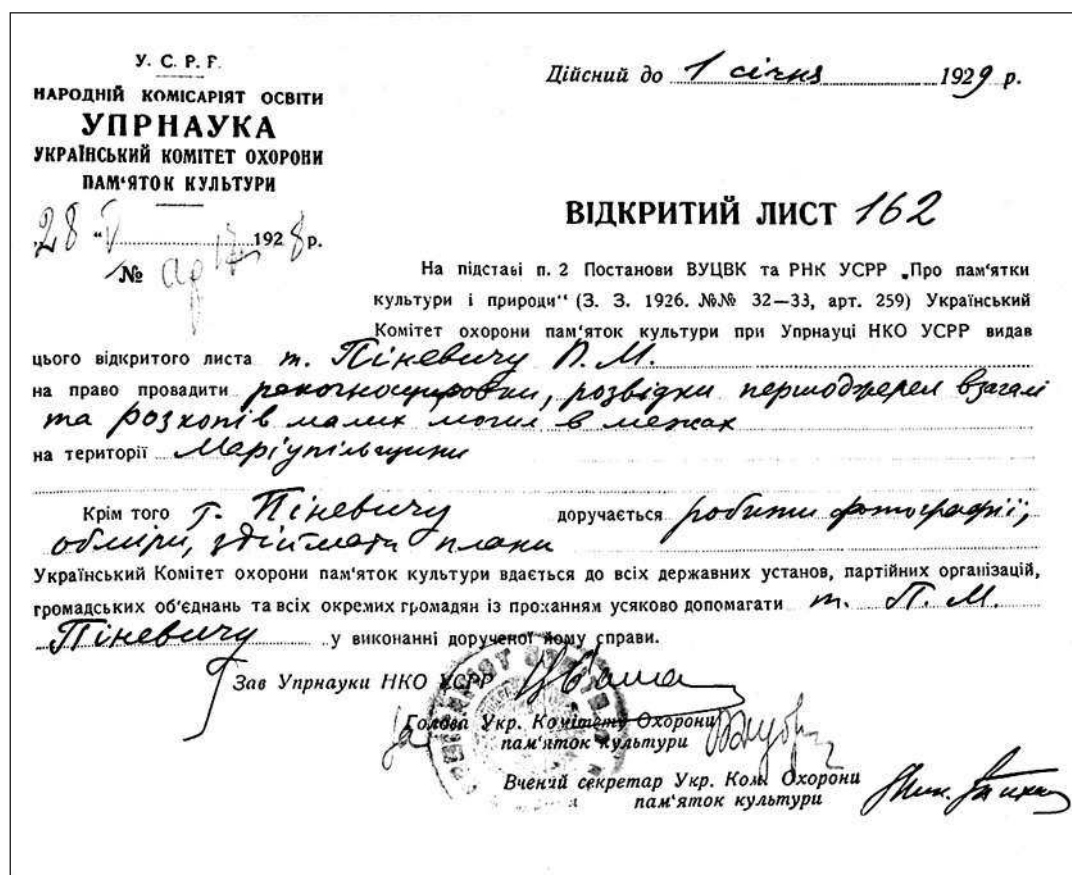 У. С. Р. Р.
НАРОДНІЙ КОМІСАРІЯТ ОСВІТИ
УПРНАУКА
УКРАЇНСЬКИЙ КОМІТЕТ ОХОРОНИ
ПАМ'ЯТОК КУЛЬТУРИ
„28 “ V 1928 р.
№
Дійсний до 1 січня 1929 р.
ВІДКРИТИЙ ЛИСТ 162
На підставі п. 2 Постанови ВУЦВК та РНК УСРР „Про пам'ятки
культури і природи“ (З. З. 1926. №№ 32—33, арт. 259) Український
Комітет охорони пам'яток культури при Упрнауці НКО УСРР видав
цього відкритого листа т. Піневичу П. М.
на право провадити рекогносцировки, розвідки першоджерел взагалі
та розкопів малих могил в межах
на території Маріупільщини
Крім того т. Піневичу доручається робити фотографії,
обміри, здіймати плани
Український Комітет охорони пам'яток культури вдається до всіх державних установ, партійних організацій,
громадських об'єднань та всіх окремих громадян із проханням усяково допомагати т. П. М.
Піневичу у виконанні дорученої йому справи.
Зав Упрнауки НКО УСРР
Голова Укр. Комітету Охорони
пам'яток культури
Вчений секретар Укр. Ком. Охорони
пам'яток культури